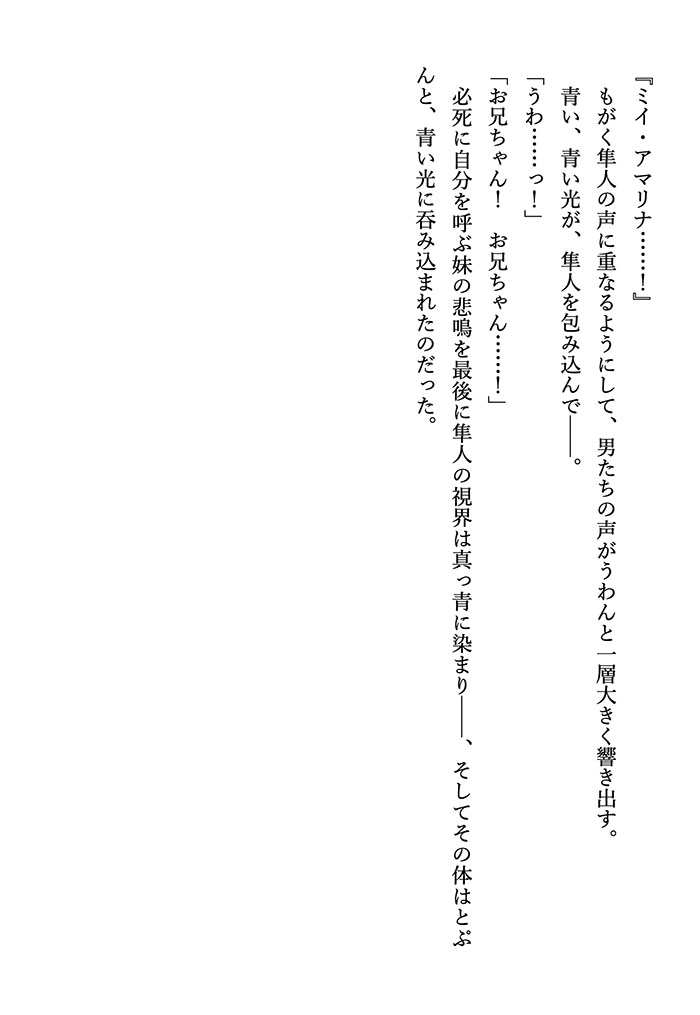 『ミイ・アマリナ……！』
　もがく隼人の声に重なるようにして、男たちの声がうわんと一層大きく響き出す。
　青い、青い光が、隼人を包み込んで――。
「うわ……っ！」
「お兄ちゃん！　お兄ちゃん……！」
　必死に自分を呼ぶ妹の悲鳴を最後に隼人の視界は真っ青に染まり――、そしてその体はとぷ
んと、青い光に呑み込まれたのだった。